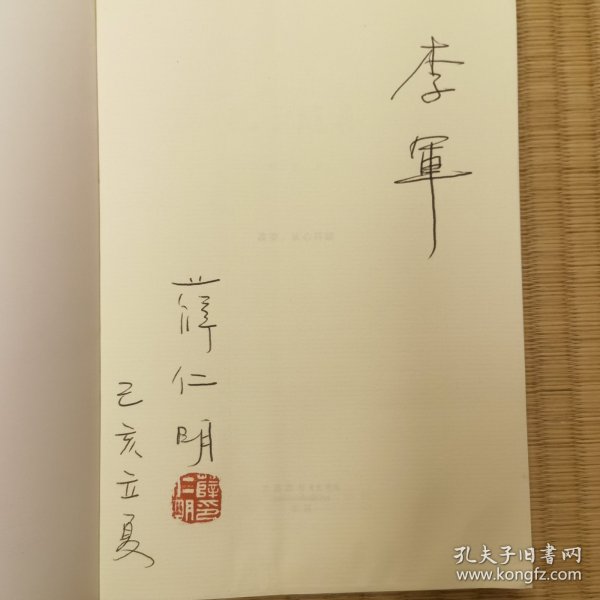 李軍
薛仁明
薛印仁明
己亥立夏
孔夫子旧書网
www.kongfz.com